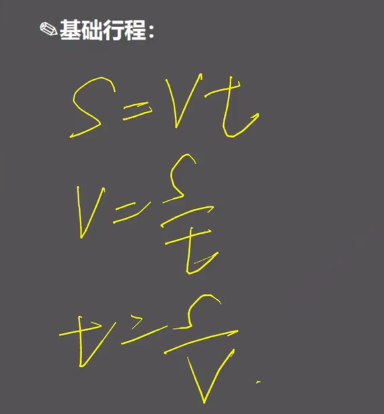 ✎基础行程：
S=Vt
V=S/t
t=S/V